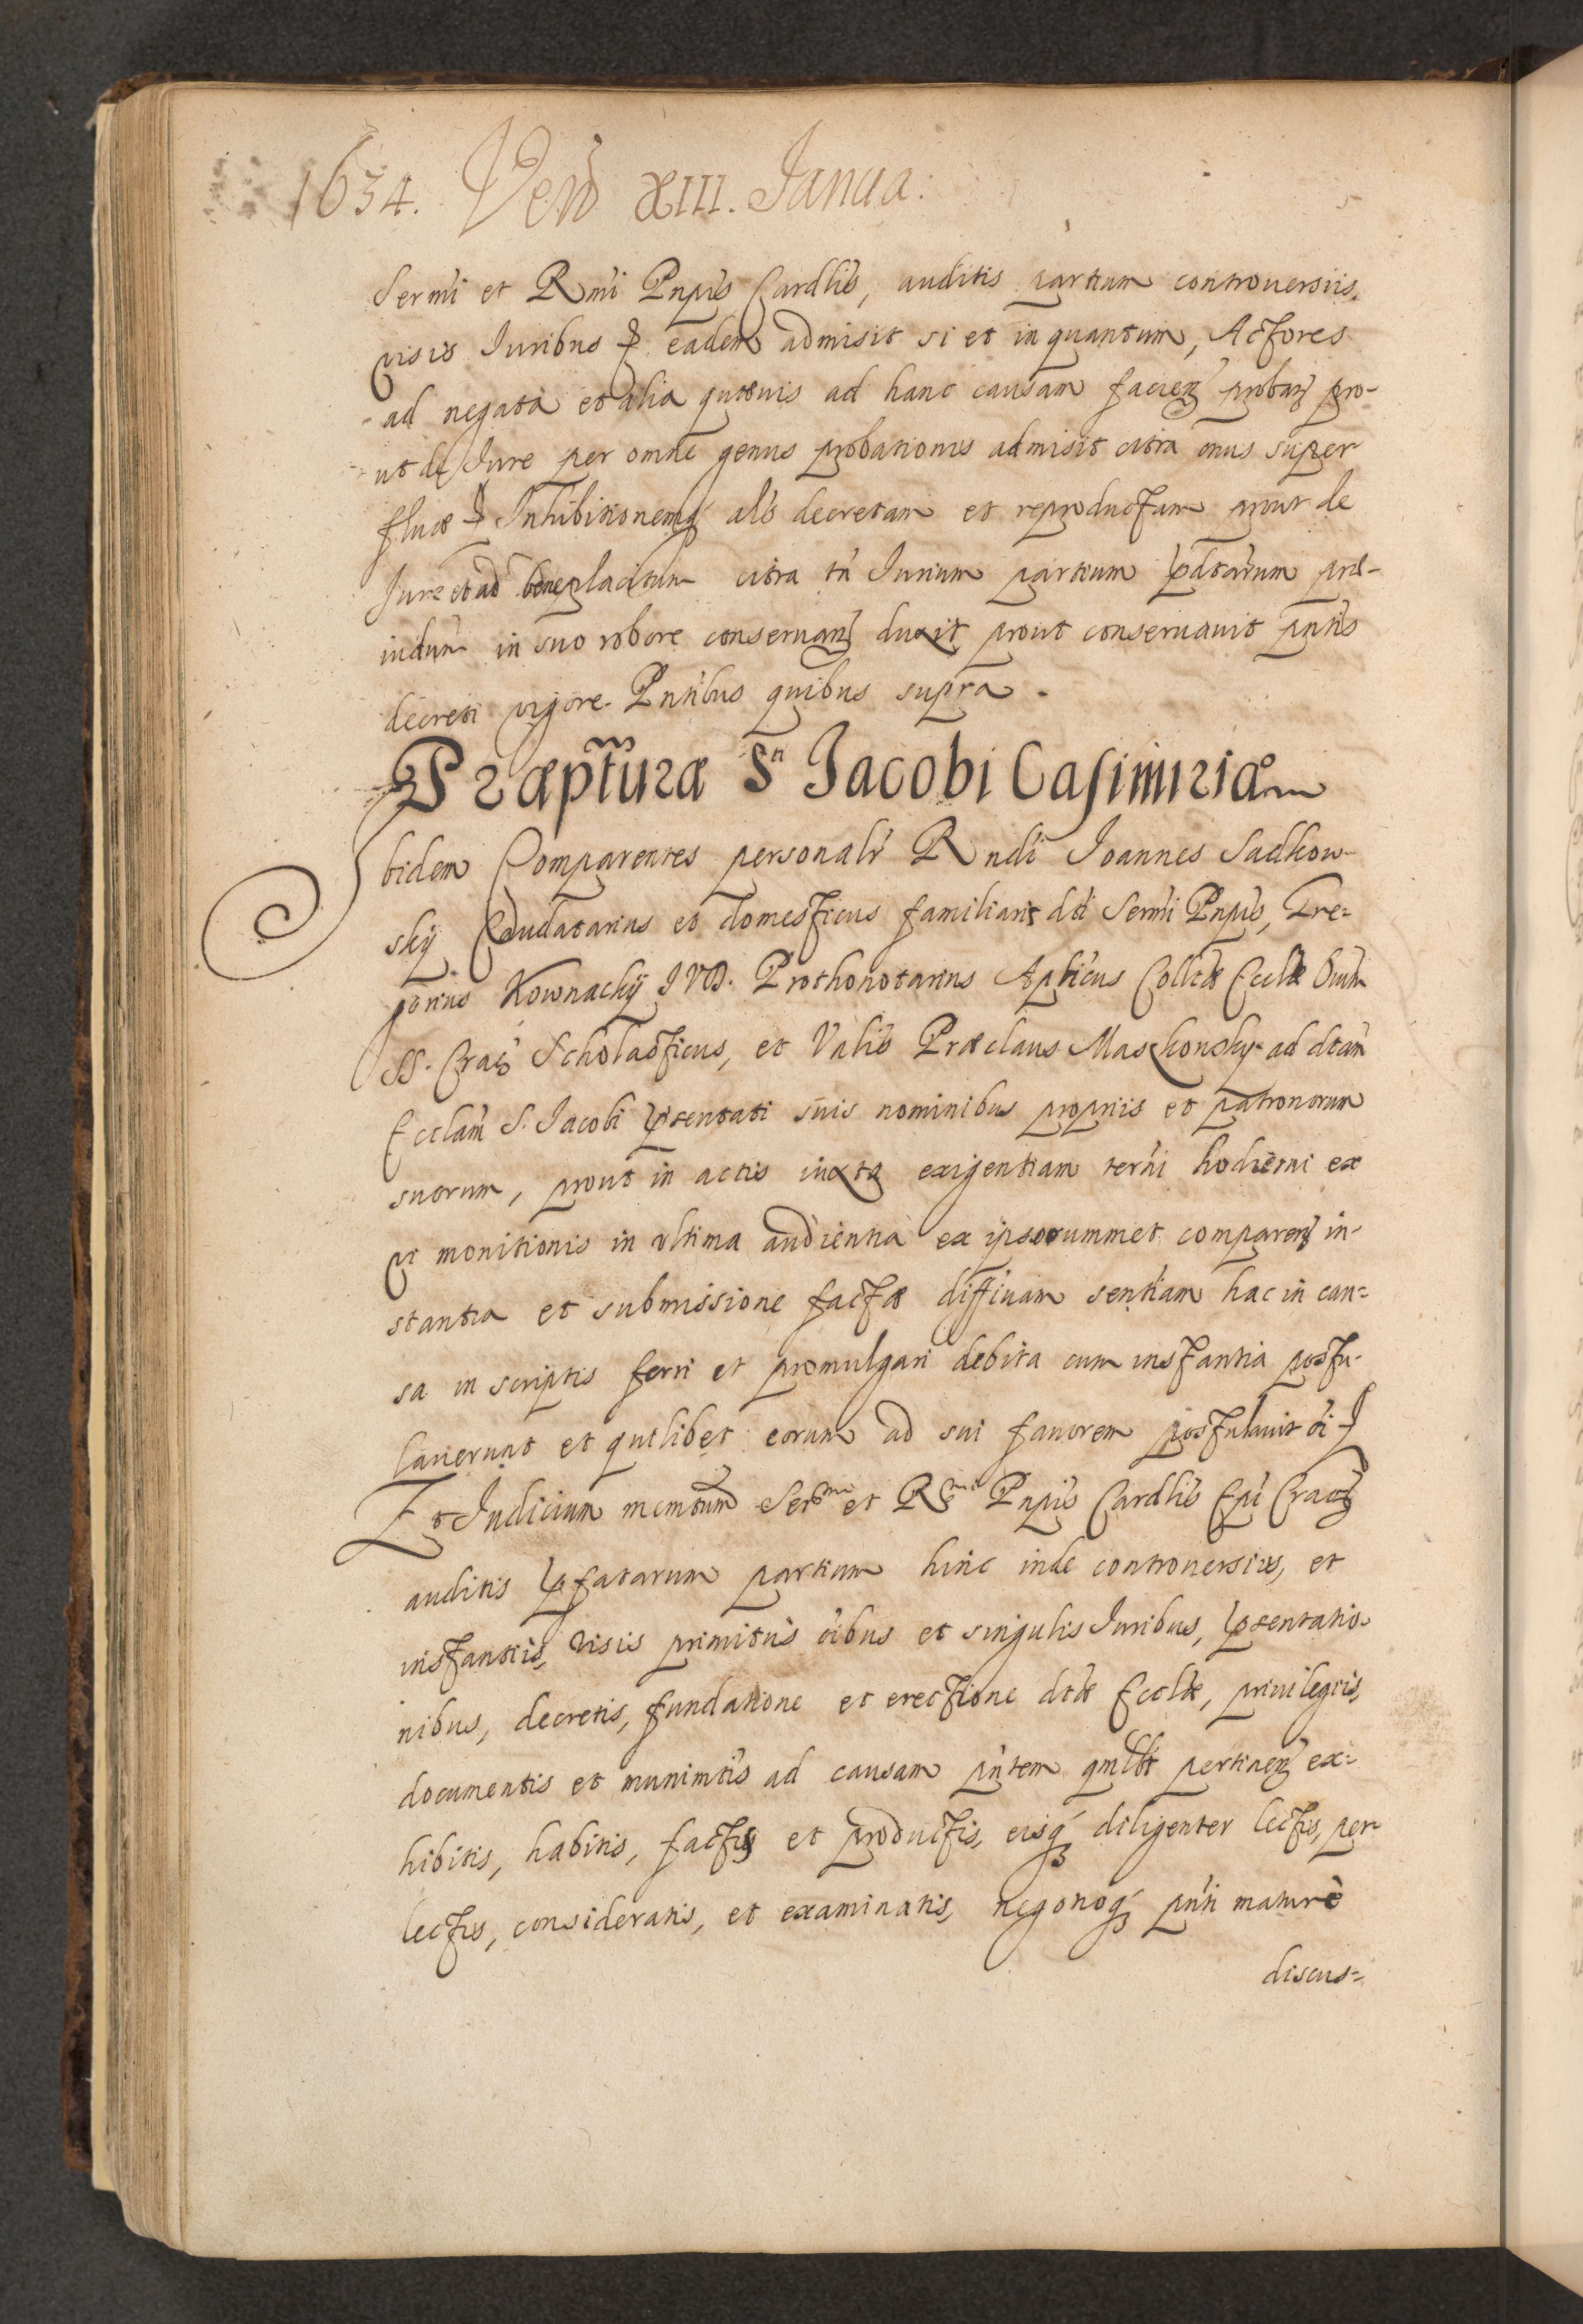 1634. Ven̄ XIII. Janua:
Serm̄i et Rm̄i Pnpis Cardlis, auditis partium controuersiis,
visis Juribus eadem admisit si et in quantum, Actores
ad negata et alia qutuis ad hanc causam facien̄ proban̄ pro-
ut de Jure per omne genus probationis admisit citra onus super
fluæ Inhibitionemq́ als decretam et reproductam prout de
Jure et ad beneplacitum citra tn̄ Jurium partium pdtarum præ-
iudum in suo robore conseruan̄ duxit prout conseruauit pntis
decreti vigore. Pntibus quibus supra.
Præpturæ Sti Jacobi Casimiriæ
Ibidem Comparentes personalr Rndi Joannes Sadkow-
skÿ Caudatarius et domesticus familiaris dti Sermi Pnpis, Gre-
gorius Kownackÿ JVD. Prothonotarius Aplicus Colltæ Ecclæ Oium
SS. Crac̄ Scholasticus, et Valis Præclaus ad dtam
Ecclam S. Jacobi psentati suis nominibus propriis et patronorum
suorum, prout in actis iuxta exigentiam termi hodierni ex
vi monitionis in vltima audientia ex ipsorummet comparen̄ in-
stantia et submissione factæ diffiuam sentiam hac in cau=
sa in scriptis ferri et promulgari debita cum instantia postu-
lauerunt et qutlibet eorum ad sui fauorem postulauit oi
Et Judicium memtum Sermi et Rmi Pnpis Cardlis Epi Crac̄
auditis pfatarum partium hinc inde controuersiis, et
instantiis, visis primitus oibus et singulis Juribus, psentatio-
nibus, decretis, fundatione et erectione dtæ Ecclæ, priuilegiis,
documentis et munimtis ad causam pntem qmlbt pertinen̄ ex=
hibitis, habitis, factis et productis, eisq́ diligenter lectis, per
lectis, consideratis, et examinatis, negotioq́ pnti maturè
discus=